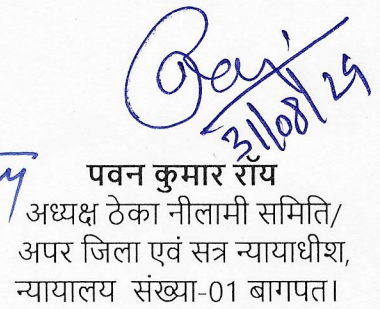 31/08/29
पवन कुमार रॉय
अध्यक्ष ठेका नीलामी समिति/
अपर जिला एवं सत्र न्यायाधीश,
न्यायालय संख्या-01 बागपत।